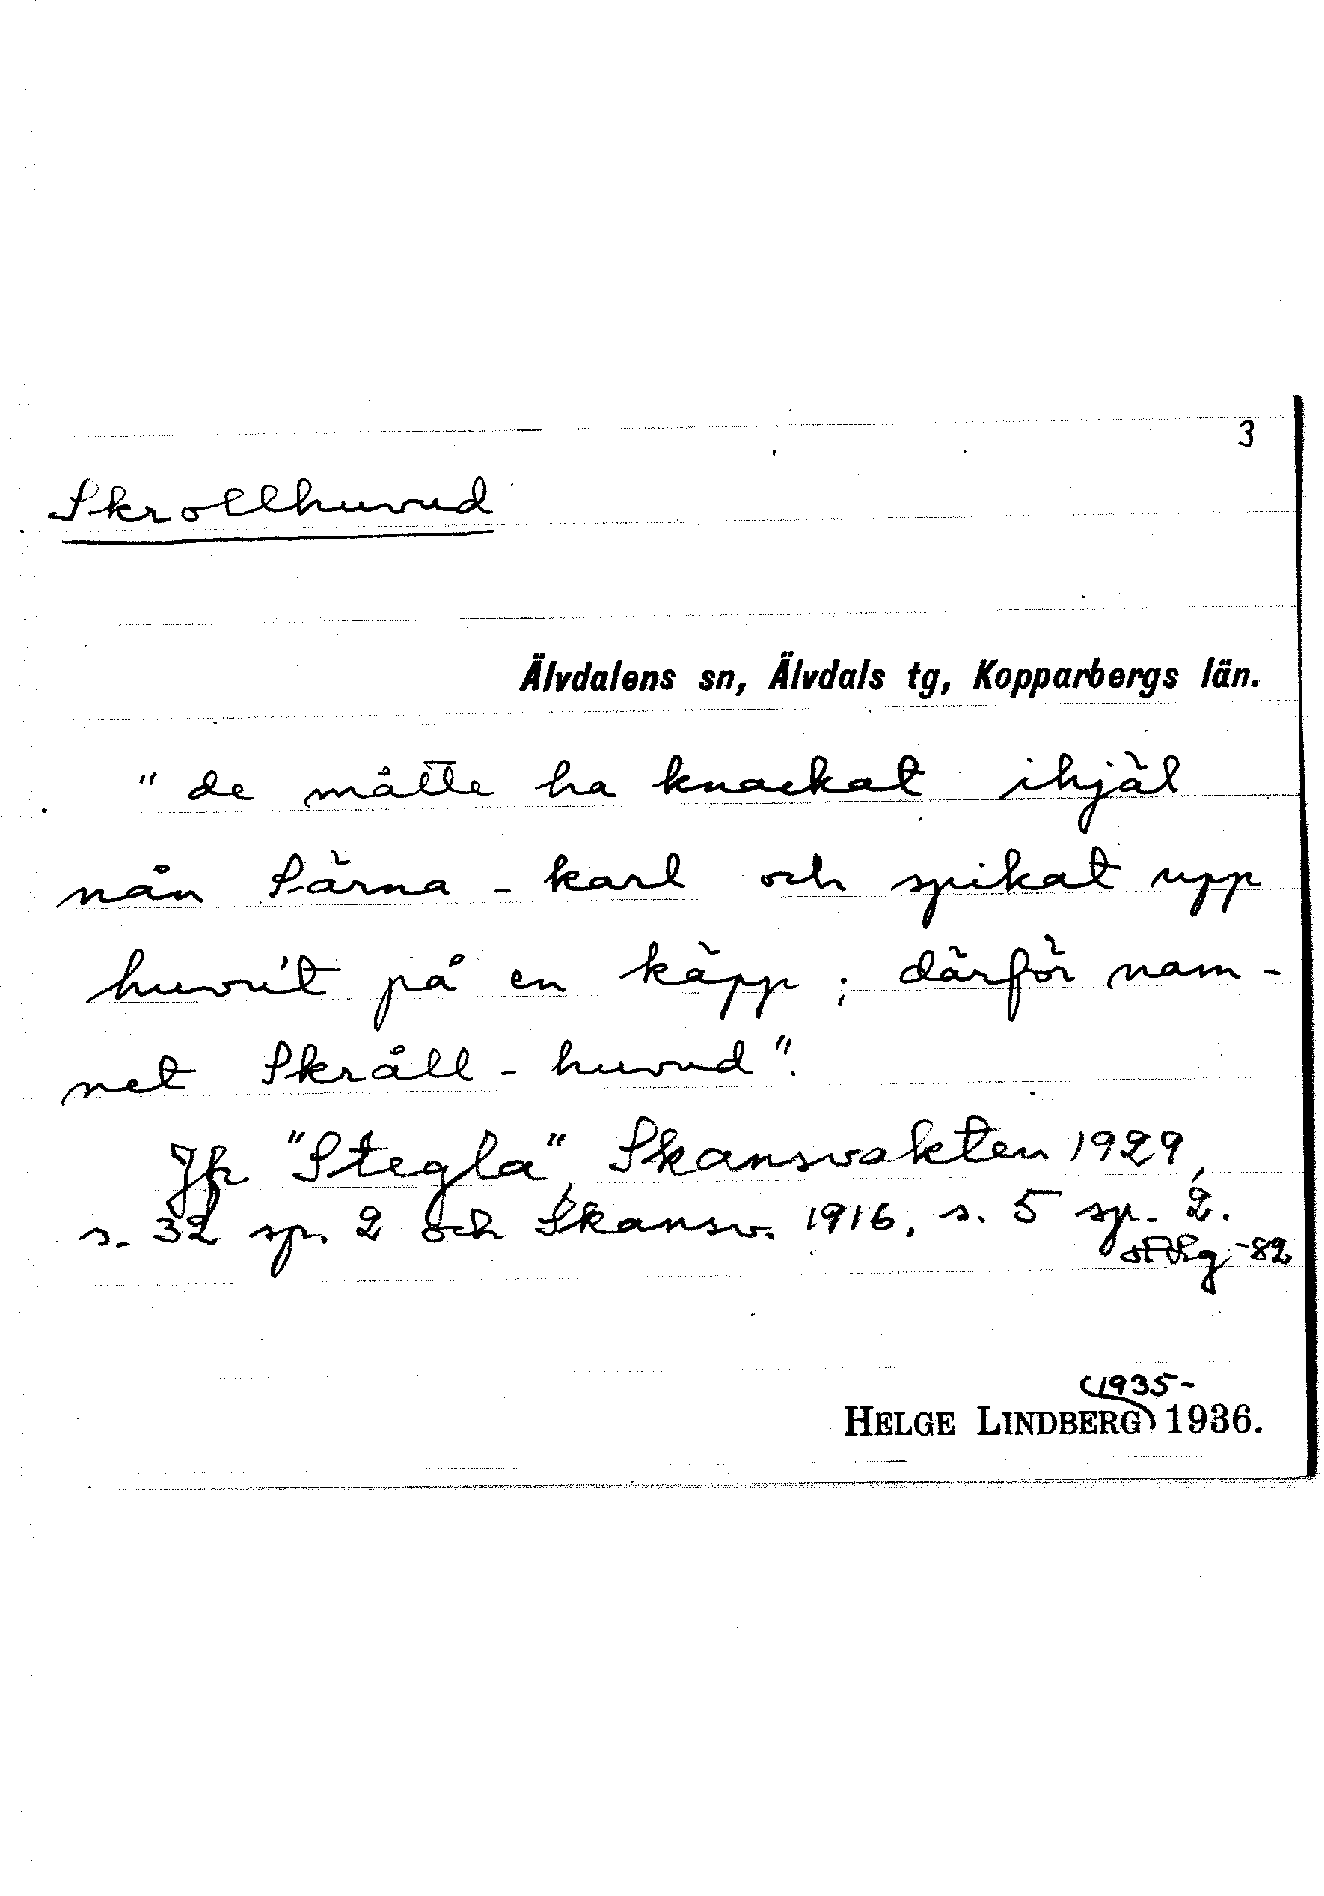 3
Skrollhuvud
Älvdalens sn, Älvdals tg, Kopparbergs län.
"de måtte ha knackat ihjäl
nån Särna-karl och spikat upp
huvu't på en käpp; därför nam-
net Skråll-huvud".
Jfr "Stegla", Skansvakten 1929,
s. 32 sp. 2 och Skansv. 1916, s. 5 sp. 2.
-82
(1935-
HELGE LINDBERG) 1936.